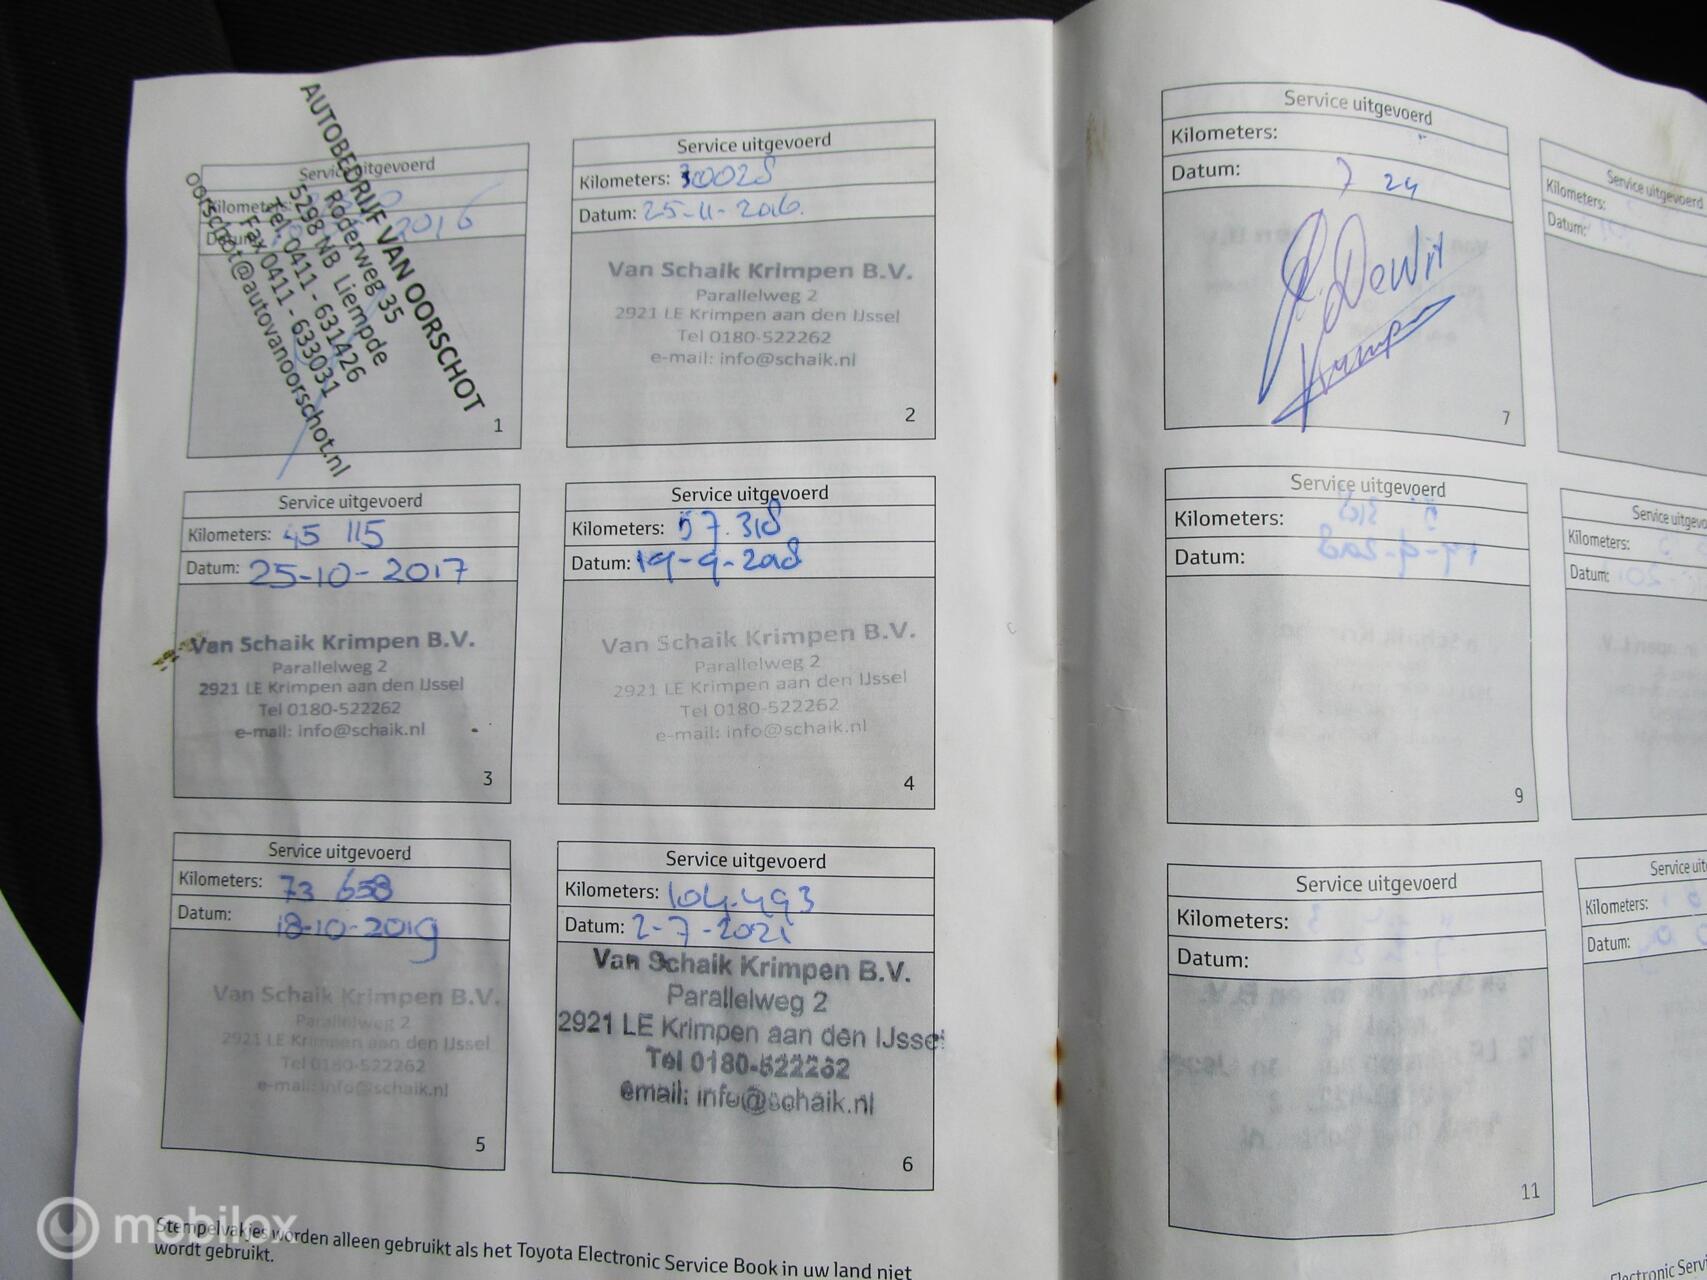 Service uitgevoerd
Kilometers:
Datum: 2016
AUTOBEDRIJF VAN OORSCHOT
Roderweg 35
5298 NB Liempde
Tel. 0411 - 631426
Fax 0411 - 633031
oorschot@autovanoorschot.nl
1
Service uitgevoerd
Kilometers: 30028
Datum: 25-11-2016.
Van Schaik Krimpen B.V.
Parallelweg 2
2921 LE Krimpen aan den IJssel
Tel 0180-522262
e-mail: info@schaik.nl
2
Service uitgevoerd
Kilometers: 45 115
Datum: 25-10-2017
Van Schaik Krimpen B.V.
Parallelweg 2
2921 LE Krimpen aan den IJssel
Tel 0180-522262
e-mail: info@schaik.nl
3
Service uitgevoerd
Kilometers: 57.318
Datum: 19-9-2018
Van Schaik Krimpen B.V.
Parallelweg 2
2921 LE Krimpen aan den IJssel
Tel 0180-522262
e-mail: info@schaik.nl
4
Service uitgevoerd
Kilometers: 73 658
Datum: 18-10-2019
Van Schaik Krimpen B.V.
Parallelweg 2
2921 LE Krimpen aan den IJssel
Tel 0180-522262
e-mail: info@schaik.nl
5
Service uitgevoerd
Kilometers: 104.493
Datum: 2-7-2021
Van Schaik Krimpen B.V.
Parallelweg 2
2921 LE Krimpen aan den IJssel
Tel 0180-522262
email: info@schaik.nl
6
Stempelvakjes worden alleen gebruikt als het Toyota Electronic Service Book in uw land niet
wordt gebruikt.
Service uitgevoerd
Kilometers:
Datum: 7 24
DeWit
Krimpen
7
Service uitgevoerd
Kilometers:
Datum:
Service uitgevoerd
Kilometers:
Datum:
9
Service uitgevo
Kilometers:
Datum:
Service uitgevoerd
Kilometers:
Datum:
11
Service uit
Kilometers:
Datum:
Electronic Servi
mobilox